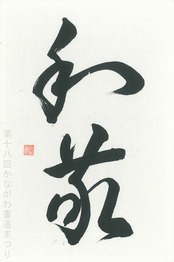 和敬
第十八回かながわ書道まつり